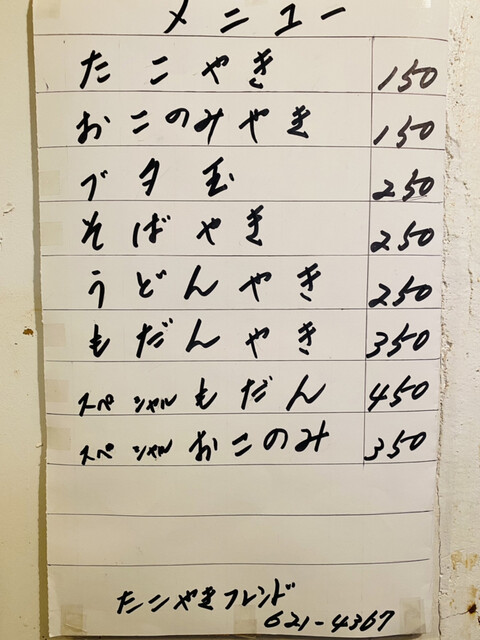 メニュー
たこやき 150
おこのみやき 150
ブタ玉 250
そばやき 250
うどんやき 250
もだんやき 350
スペシャルもだん 450
スペシャルおこのみ 350
たこやきフレンド
621-4367